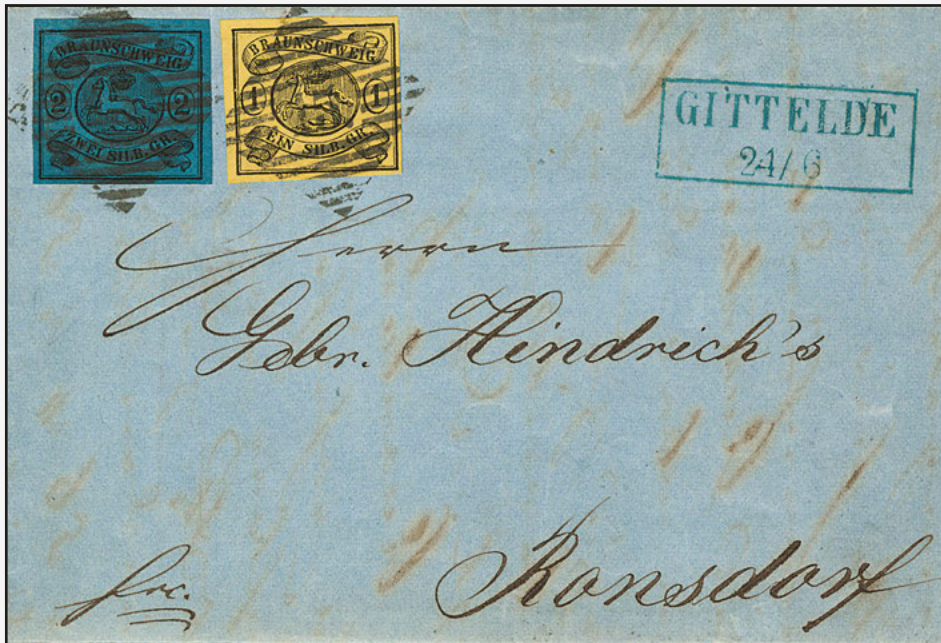 BRAUNSCHWEIG
2 2
ZWEI SILB. GR.
BRAUNSCHWEIG
1 1
EIN SILB. GR.
GITTELDE
24/6
Herrn
Gebr. Hindrich's
Ronsdorf
frc.